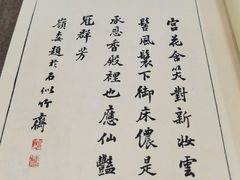 宮花含笑對新妝雲
髻風鬟下御床儂是
承恩香殿裡也應仙豔
冠群芳
嶺題於石似竹齋